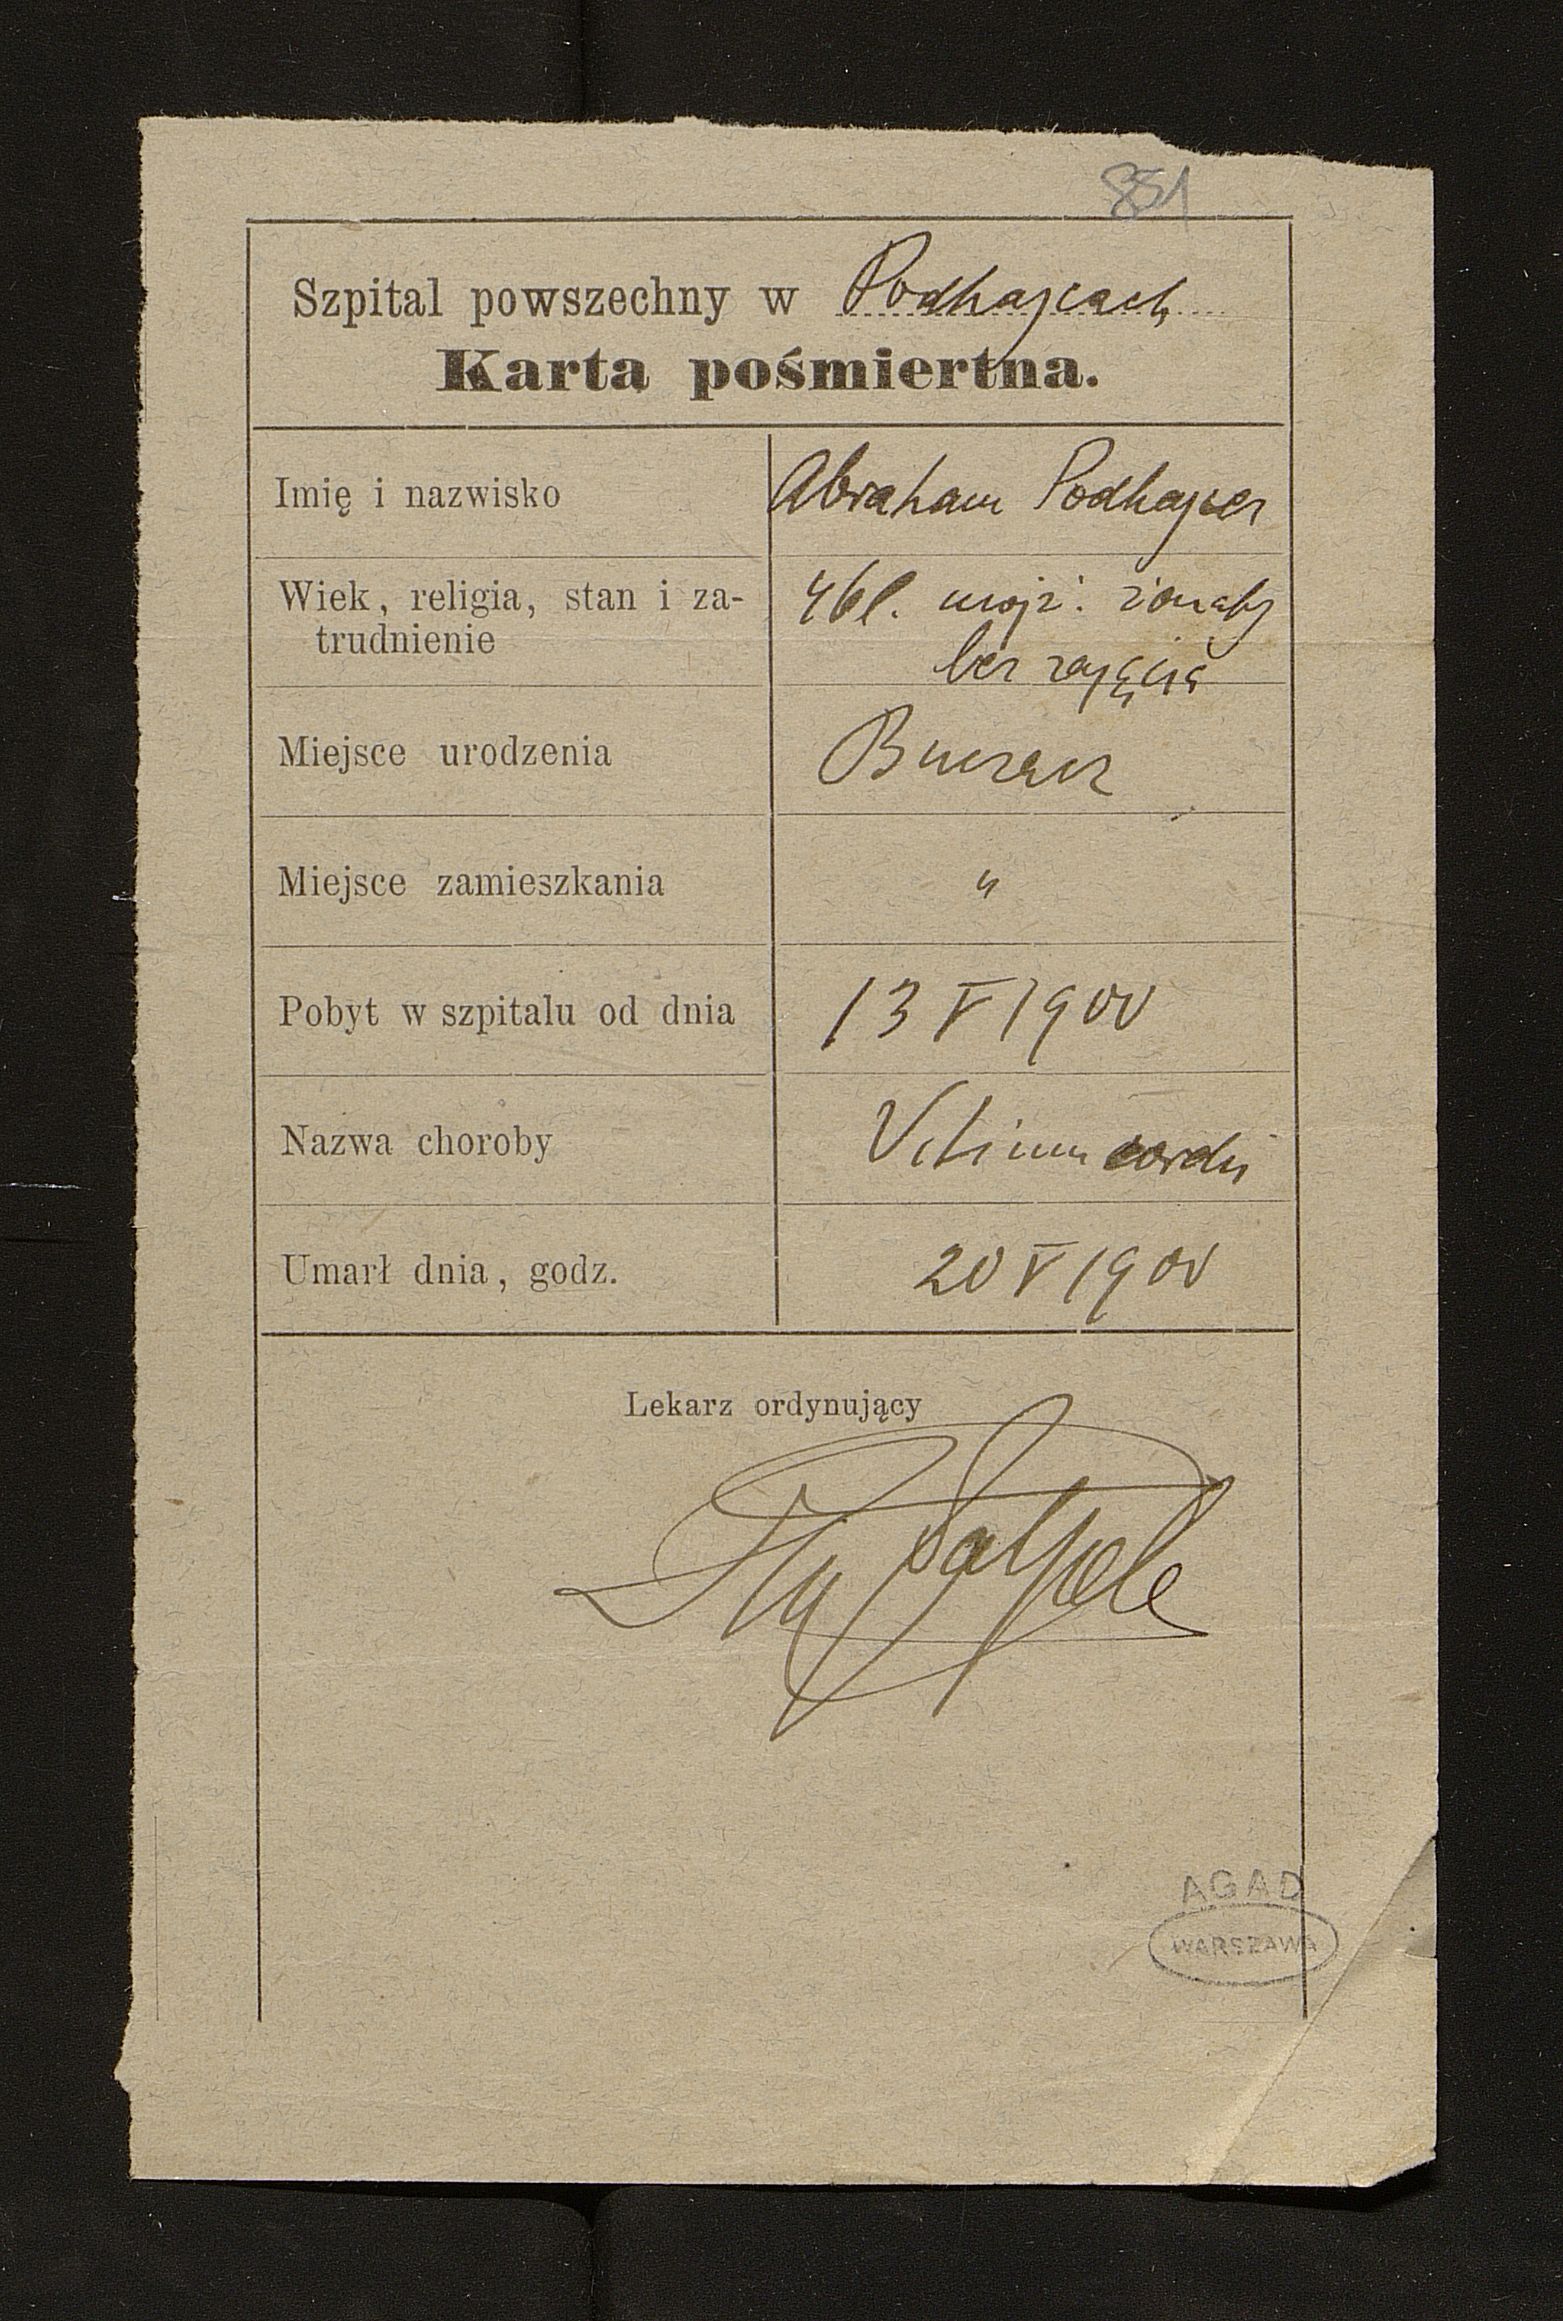 851
Szpital powszechny w Podhajcach
Karta pośmiertna.
Imię i nazwisko Abraham Podhajcer
Wiek, religia, stan i za-
trudnienie 46 l. mojż. żonaty
bez zajęcia
Miejsce urodzenia Buczacz
Miejsce zamieszkania "
Pobyt w szpitalu od dnia 13 V 1900
Nazwa choroby Vitium cordis
Umarł dnia, godz. 20 V 1900
Lekarz ordynujący
AGAD
WARSZAWA